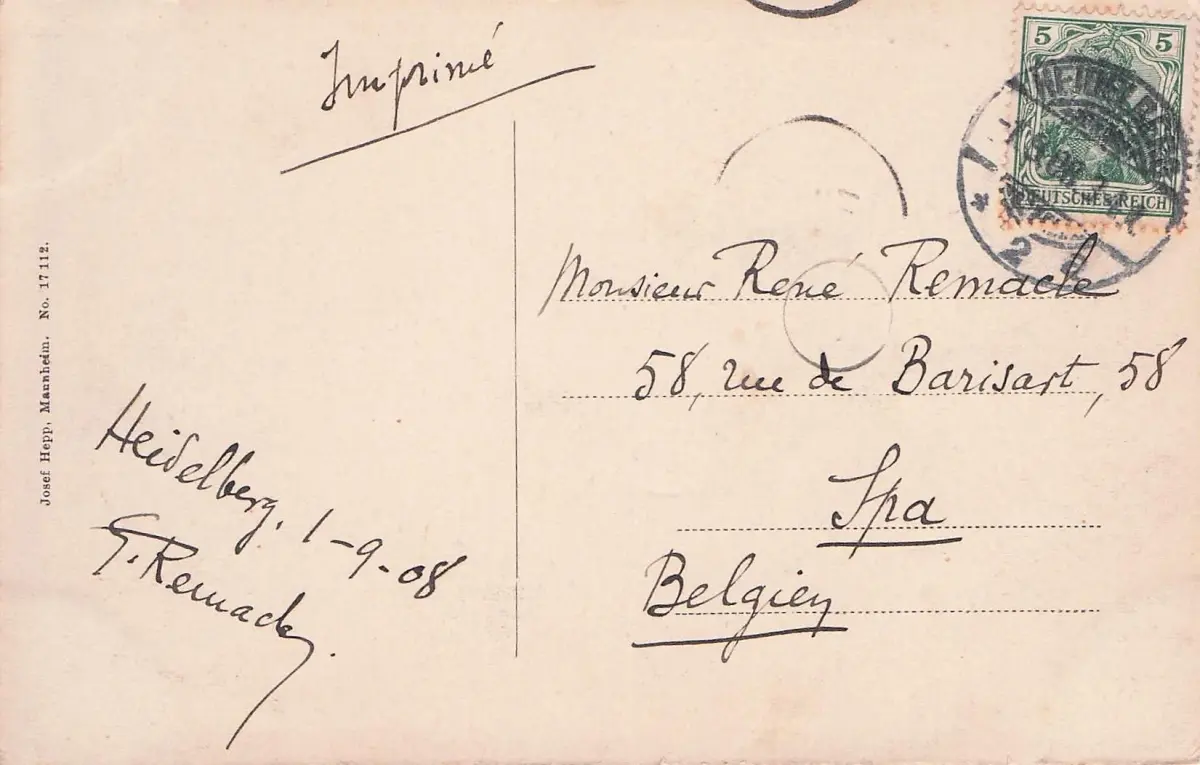 Imprimé
5 5
DEUTSCHES REICH
Monsieur René Remacle
58, rue de Barisart, 58
Spa
Belgien
Heidelberg, 1-9-08
G. Remacle
Josef Hepp, Mannheim. No. 17112.